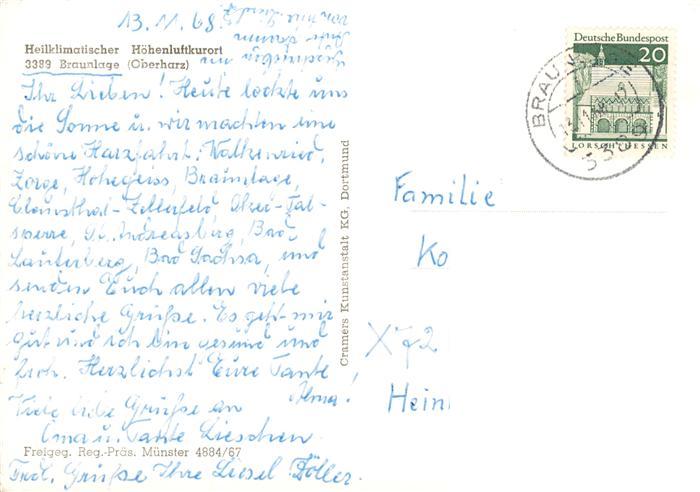 13.11.68.
Heilklimatischer Höhenluftkurort
3389 Braunlage (Oberharz)
Ihr Lieben! Heute lockte uns
die Sonne u. wir machten eine
schöne Harzfahrt: Walkenried,
Zorge, Hohegeiss, Braunlage,
Clausthal-Zellerfeld, Oker-Tal-
sperre, St. Andreasberg, Bad
Lauterberg, Bad Sachsa, und
senden Euch allen viele
herzliche Grüße. Es geht mir
gut und ich bin gesund und
froh. Herzlichst Eure Tante
Alma!
Viele liebe Grüße an
Oma u. Tante Lieschen.
Freigeg. Reg.-Präs. Münster 4884/67
Frdl. Grüße Ihre Liesel Döller.
Cramers Kunstanstalt KG, Dortmund
Deutsche Bundespost
20
LORSCH/HESSEN
3389
Familie
Ko
X72
Hein